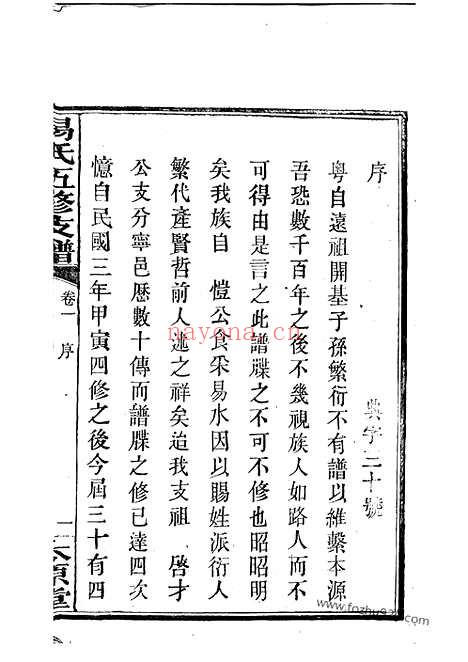 序
典字二十號
粤自遠祖開基子孫繁衍不有譜以維繫本源
吾恐數千百年之後不幾視族人如路人而不
可得由是言之此譜牒之不可不修也昭昭明
矣我族自 愷公食采易水因以賜姓派衍人
繁代產賢哲前人述之祥矣迨我支祖 啓才
公支分寧邑歷數十傳而譜牒之修已達四次
憶自民國三年甲寅四修之後今屆三十有四
易氏五修支譜
卷一 序
一 太原堂
nayona.cn
www.fozhu920.com